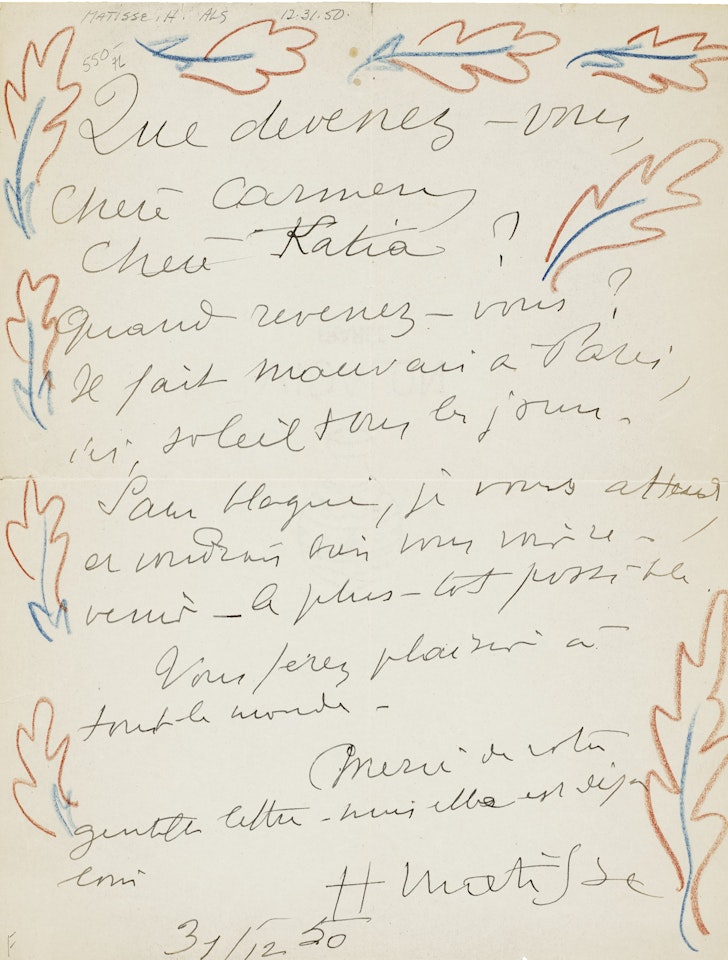 MATISSE, H. ALS 12.31.50.
550-
Que devenez-vous,
Chère Carmen,
Chère Katia ?
Quand revenez-vous ?
Il fait mauvais à Paris,
ici, soleil tous les jours.
Sans blague, je vous attends,
et voudrais bien vous voir re-
venir - le plus-tôt possible.
Vous ferez plaisir à
tout le monde -
Merci de votre
gentille lettre - mais elle est déjà
loin
H Matisse
31/12 50
F